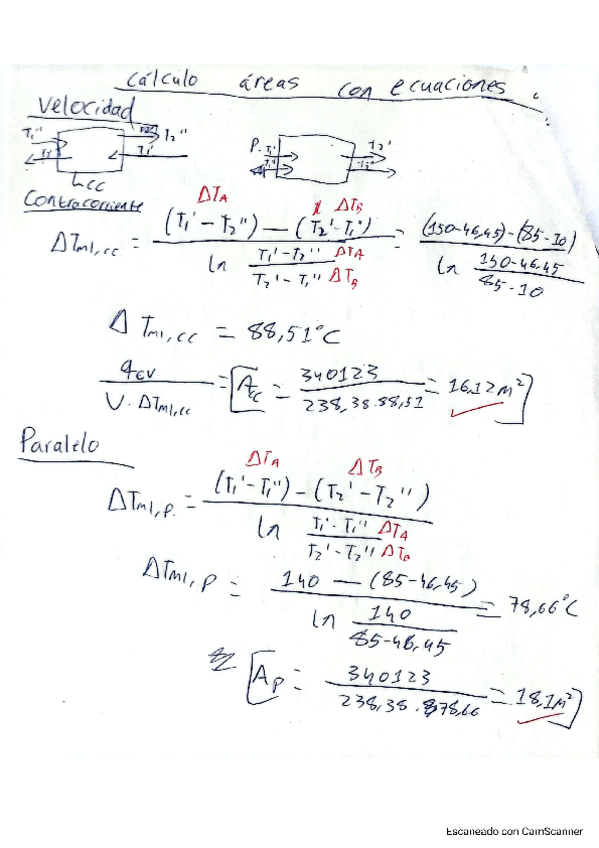 Cálculo áreas con ecuaciones.
Velocidad
T1'' T2'' T1'
P. T1' T2'
CC
Contracorriente
ΔTA ΔTB
ΔTml,cc = (T1' - T2'') - (T2' - T1'') / ln (T1' - T2'' ΔTA / T2' - T1'' ΔTB) = (150-46,45)-(85-10) / ln (150-46.45 / 85-10)
ΔTml,cc = 88,51°C
qev / U.ΔTml,cc = [Acc = 340123 / 238,38.88,51 = 16,12m²]
Paralelo
ΔTA ΔTB
ΔTml,p. = (T1' - T1'') - (T2' - T2'') / ln (T1' - T1'' ΔTA / T2' - T2'' ΔTB)
ΔTml,p = 140 - (85-46,45) / ln (140 / 85-46,45) = 78,66°C
[Ap = 340123 / 238,38.78,66 = 18,1m²]
Escaneado con CamScanner